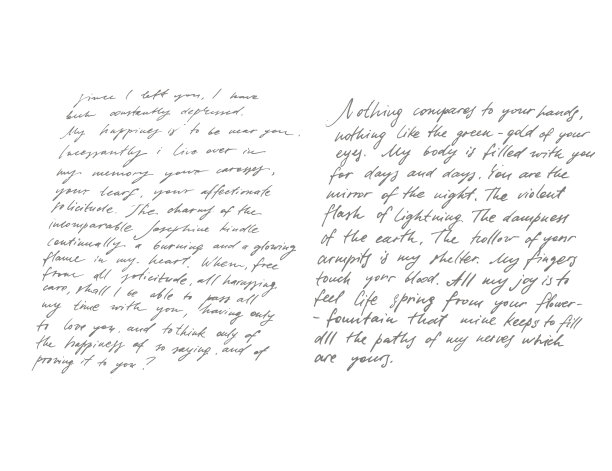 since I left you, I have
but constantly depressed.
My happiness is to be near you.
Incessantly i live over in
my memory your caresses,
your tears, your affectionate
solicitude. The charms of the
incomparable Josephine kindle
continually a burning and a glowing
flame in my heart. When, free
from all solicitude, all harassing
care, shall I be able to pass all
my time with you, having only
to love you, and to think only of
the happiness of so saying, and of
proving it to you?
Nothing compares to your hands,
nothing like the green-gold of your
eyes. My body is filled with you
for days and days. You are the
mirror of the night. The violent
flash of lightning. The dampness
of the earth. The hollow of your
armpits is my shelter. My fingers
touch your blood. All my joy is to
feel life spring from your flower-
-fountain that mine keeps to fill
all the paths of my nerves which
are yours.